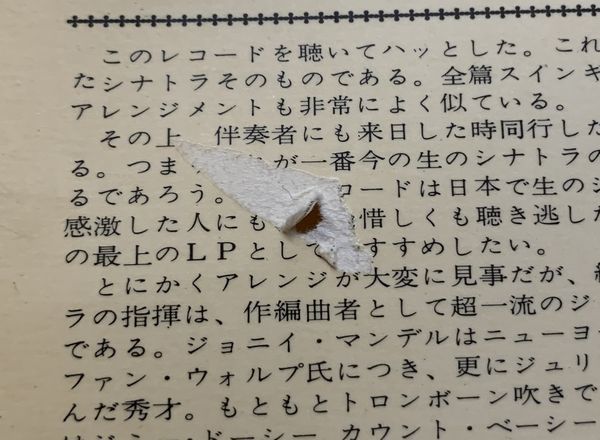 このレコードを聴いてハッとした。これ
たシナトラそのものである。全篇スインギ
アレンジメントも非常によく似ている。
その上 伴奏者にも来日した時同行した
る。つま が一番今の生のシナトラの
るであろう。 コードは日本で生のシ
感激した人にも 惜しくも聴き逃した
の最上のＬＰとして すすめしたい。
とにかくアレンジが大変に見事だが、
ラの指揮は、作編曲者として超一流のジ
である。ジョニイ・マンデルはニューヨー
ファン・ウォルプ氏につき、更にジュリ
んだ秀才。もともとトロンボーン吹きで
ドーシー カウント・ベーシー